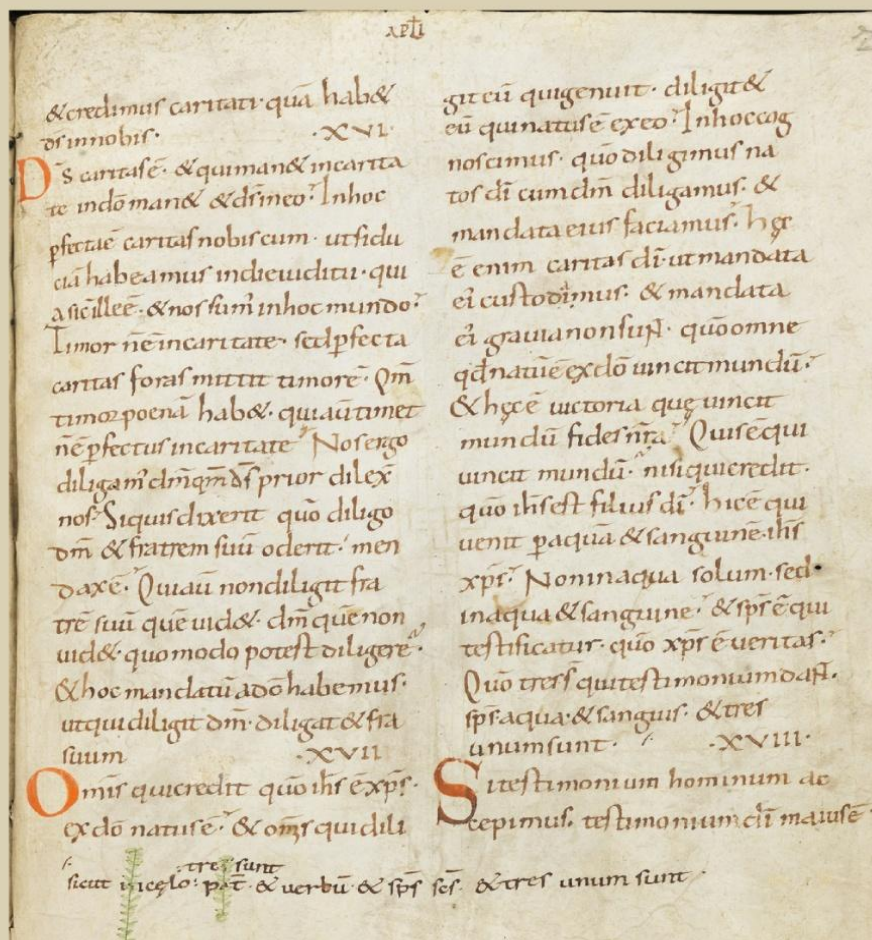 APLI
& credimus caritati· quā hab&
ds innobis· ·XVI·
Ds caritas ē· & qui man& incarita
te indō man& & ds ineo· Inhoc
pfecta ē caritas nobiscum· utfidu
ciā habeamus indie iudicii· qui
a sic ille ē· & nos sum inhoc mundo·
Timor nē incaritate· sed pfecta
caritas foras mittit timorē· Qm
timor poenā hab&· qui aū timet
nē pfectus incaritate Nos ergo
diligam dm qm ds prior dilex
nos· Siquis dixerit quō diligo
dm & fratrem suū oderit· men
dax ē· Qui aū non diligit fra
trē suū quē uid&· dm quē non
uid&· quomodo potest diligere·
& hoc mandatū adō habemus·
utqui diligit dm· diligat & fra
suum ·XVII
Omis qui credit quō ihs ē xps·
exdō natus ē· & oms qui dili
git eū qui genuit· diligit &
eū qui natus ē exeo· Inhoc cog
noscimus· quō diligimus na
tos di cum dm diligamus· &
mandata eius faciamus· hęc
ē enim caritas di· ut mandata
ei custodimus· & mandata
ei grauia non sunt· quō omne
qd natū ē exdō uincit mundū·
& hęc ē uictoria quę uincit
mundū fides nra Quis ē qui
uincit mundū· nisi qui credit·
quō ihs est filius di· hic ē qui
uenit p aquā & sanguinē ihs
xps· Non inaqua solum· sed
inaqua & sanguine· & sps ē qui
testificatur· quō xps ē ueritas·
Quō tres s qui testimonium dant·
sps· aqua· & sanguis· & tres
unum sunt· ·XVIII·
Si testimonium hominum ac
cepimus· testimonium di maius ē
tres sunt
sicut in cęlo· pat· & uerbū· & sps scs· & tres unum sunt·